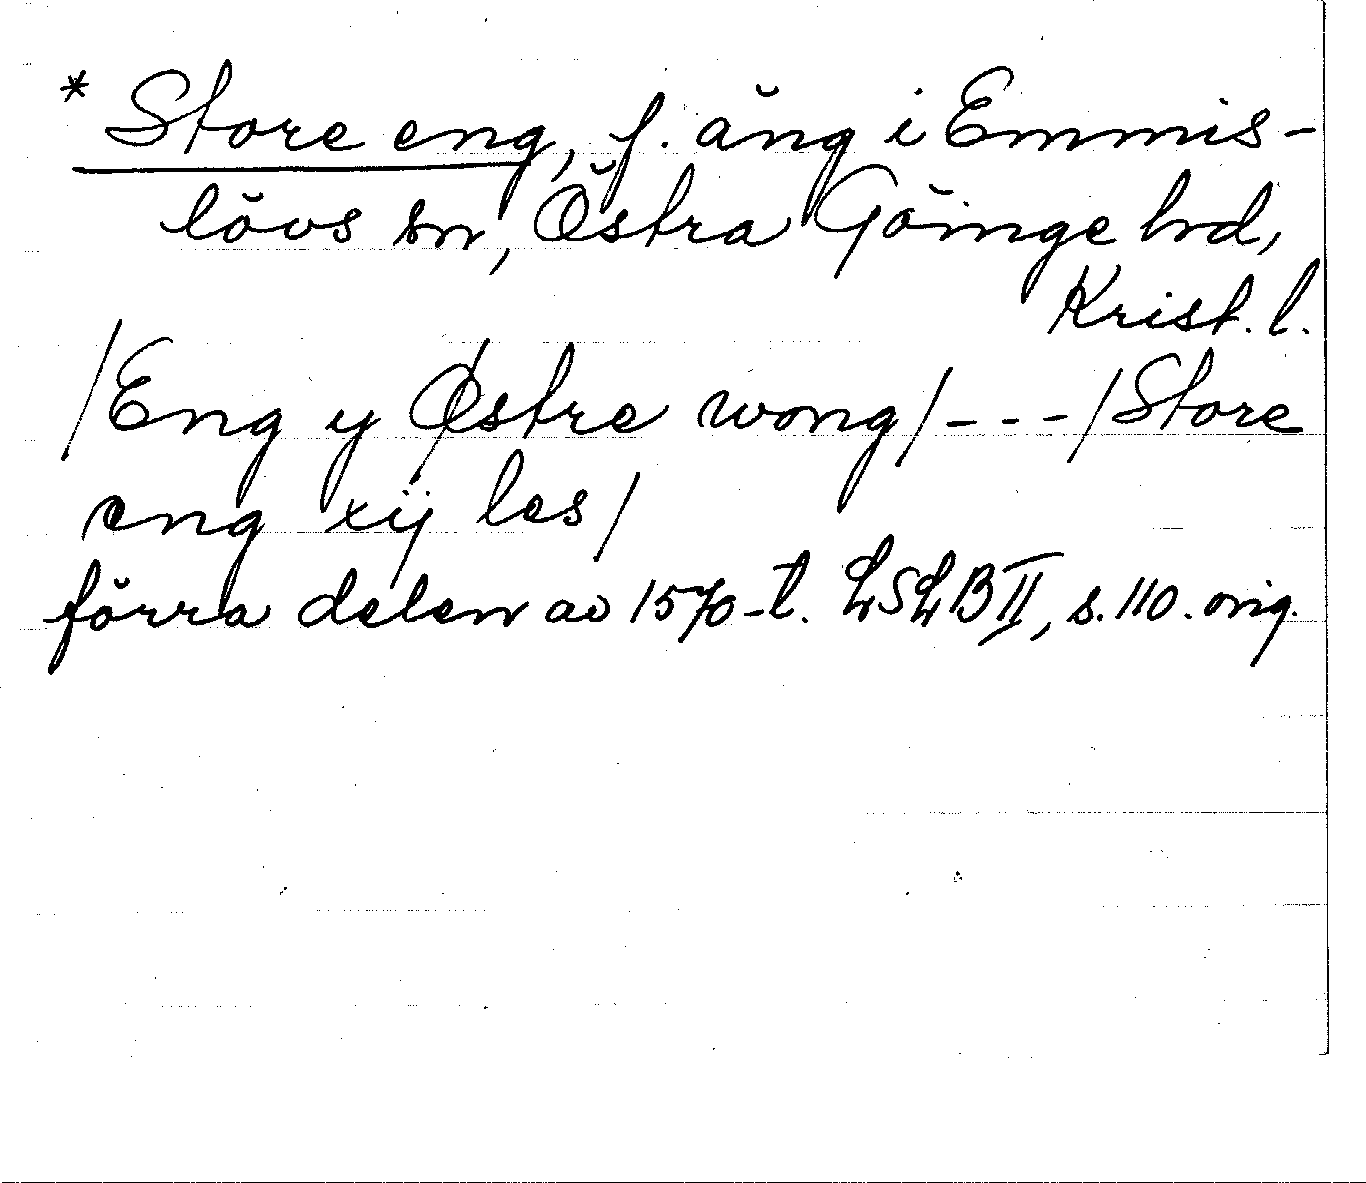 * Store eng, f. äng i Emmis-
lövs sn, Östra Göinge hd,
Krist. l.
/Eng y Østre wong/---/Store
eng xij les/
förra delen av 1570-t. LSLB II, s. 110. orig.